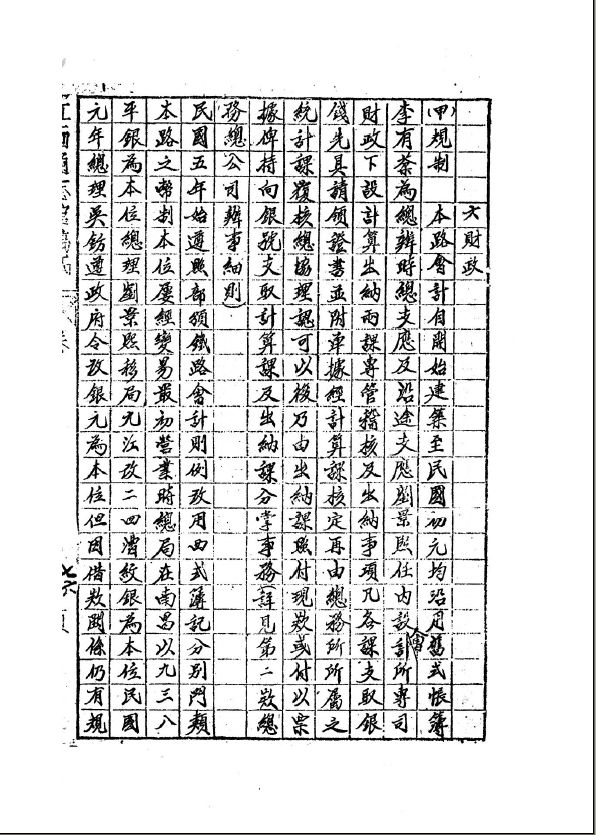 六財政
(甲)規制　本路會計自開始建築至民國初元均沿用舊式帳簿
李有棻為總辦時總支應及沿途支應劉景熙任內設會計所專司
財政下設計算出納兩課專管稽核及出納事項凡各課支取銀
錢先具請領證書並附單據經計算課核定再由總務所所屬之
統計課覆核總協理認可以後乃由出納課照付現欵或付以票
據俾持向銀號支取計算課及出納課分掌事務(詳見第二欵總
務總公司辦事細則)
民國五年始遵照部頒鐵路會計則例改用西式簿記分別門類
本路之幣制本位屢經變易最初營業時總局在南昌以九三八
平銀為本位總理劉景熙移局九江改二四漕紋銀為本位民國
元年總理吳鈁遵政府令改銀元為本位但因借欵關係仍有規